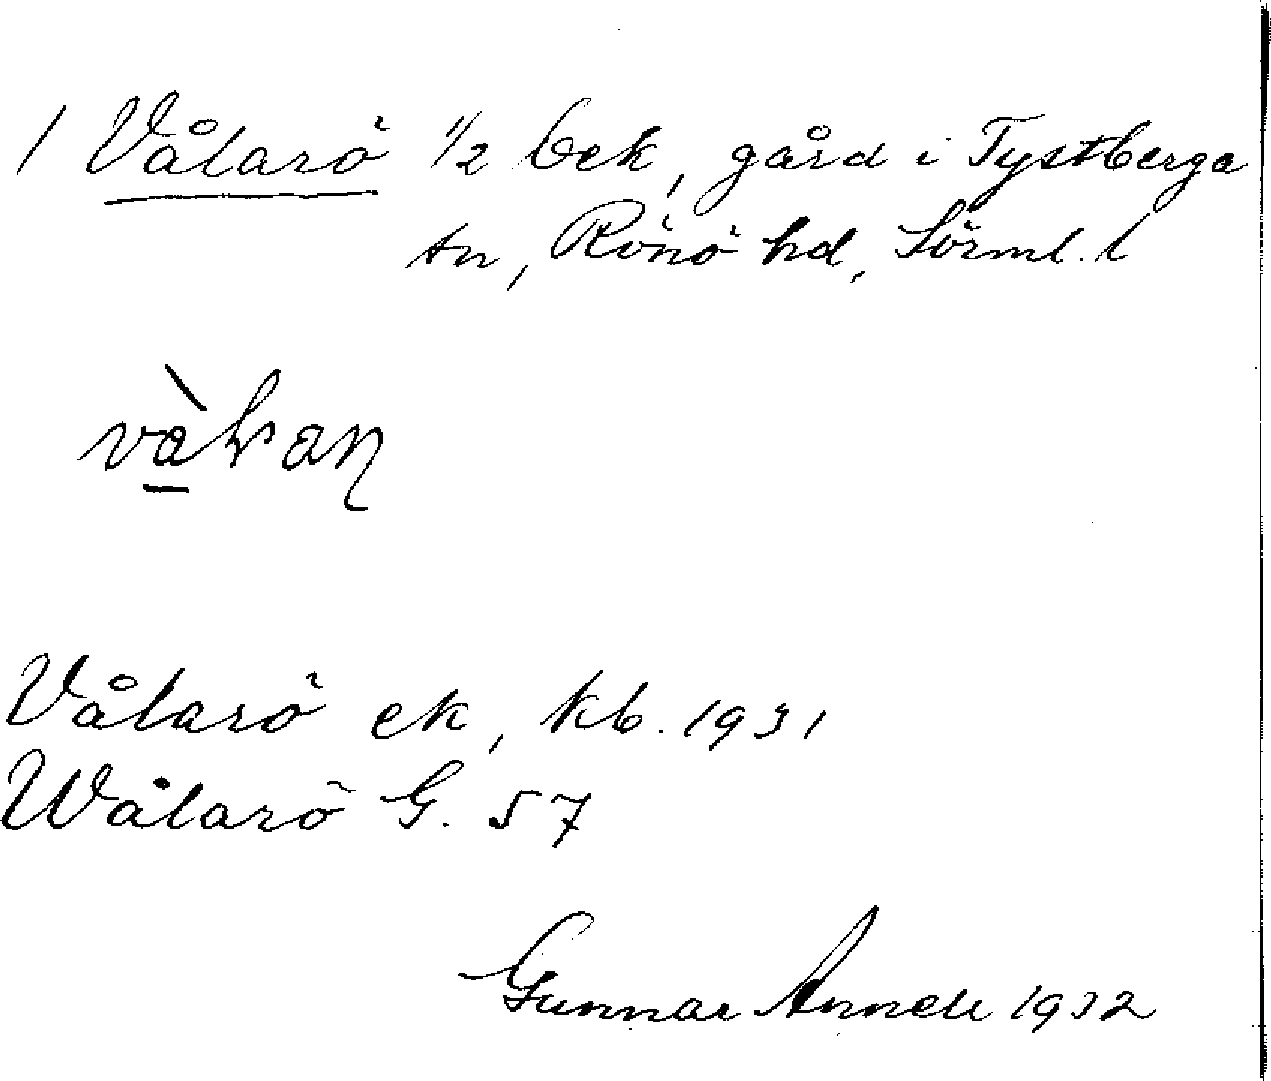 / Vålarö 1/2 bek, gård i Tystberga
sn, Rönö hd, Sörml. l
Vålarö ek, kb. 1931
Wålarö G. 57
Gunnar Annell 1932